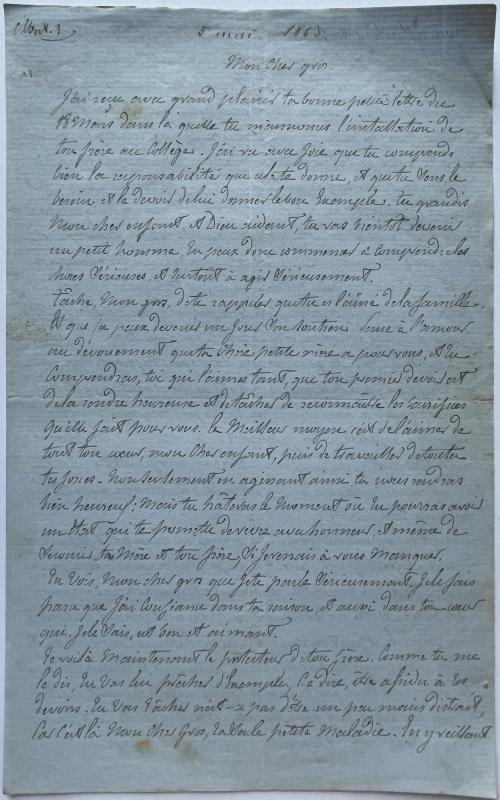 Albert. 1
5 mai 1863
Mon cher gros.
J'ai reçu avec grand plaisir ta bonne petite lettre du
18 Mars dans la quelle tu m'annonces l'installation de
ton frère au Collège. J'ai vu avec joie que tu comprends
bien la responsabilité que cela te donne, et que tu sens le
besoin et le devoir de lui donner le bon Exemple. tu grandis
mon cher enfant, et Dieu aidant, tu vas bientôt devenir
un petit homme. tu peux donc commencer à comprendre les
choses sérieuses, et surtout à agir sérieusement.
Tâche, mon gros, de te rappeler que tu es l'aîné de la famille,
et que tu peux devenir un jour son soutien. Pense à l'amour
au dévouement que ta chère petite mère a pour vous, et tu
comprendras, toi qui l'aimes tant, que ton premier devoir est
de la rendre heureuse et de tâcher de reconnaître les sacrifices
qu'elle fait pour vous. le Meilleur moyen c'est de l'aimer de
tout ton cœur, mon cher enfant, puis de travailler de toutes
tes forces. Non seulement en agissant ainsi tu nous rendras
bien heureux; Mais tu hâteras le moment où tu pourras avoir
un état qui te permette de vivre avec honneur, et même de
secourir ta Mère et ton frère, si je venais à vous manquer.
Tu vois, mon cher gros que je te parle sérieusement. Je le fais
parce que j'ai confiance dans ta raison, et aussi dans ton cœur
qui, je le sais, est bon et aimant.
Te voilà maintenant le protecteur de ton frère. Comme tu me
le dis, tu vas lui prêcher d'Exemple, c.à.dire, être assidu à tes
devoirs. tu vas tâcher n'est-ce pas d'être un peu moins distrait,
car c'est là mon cher Gros, ta seule petite maladie. En y veillant